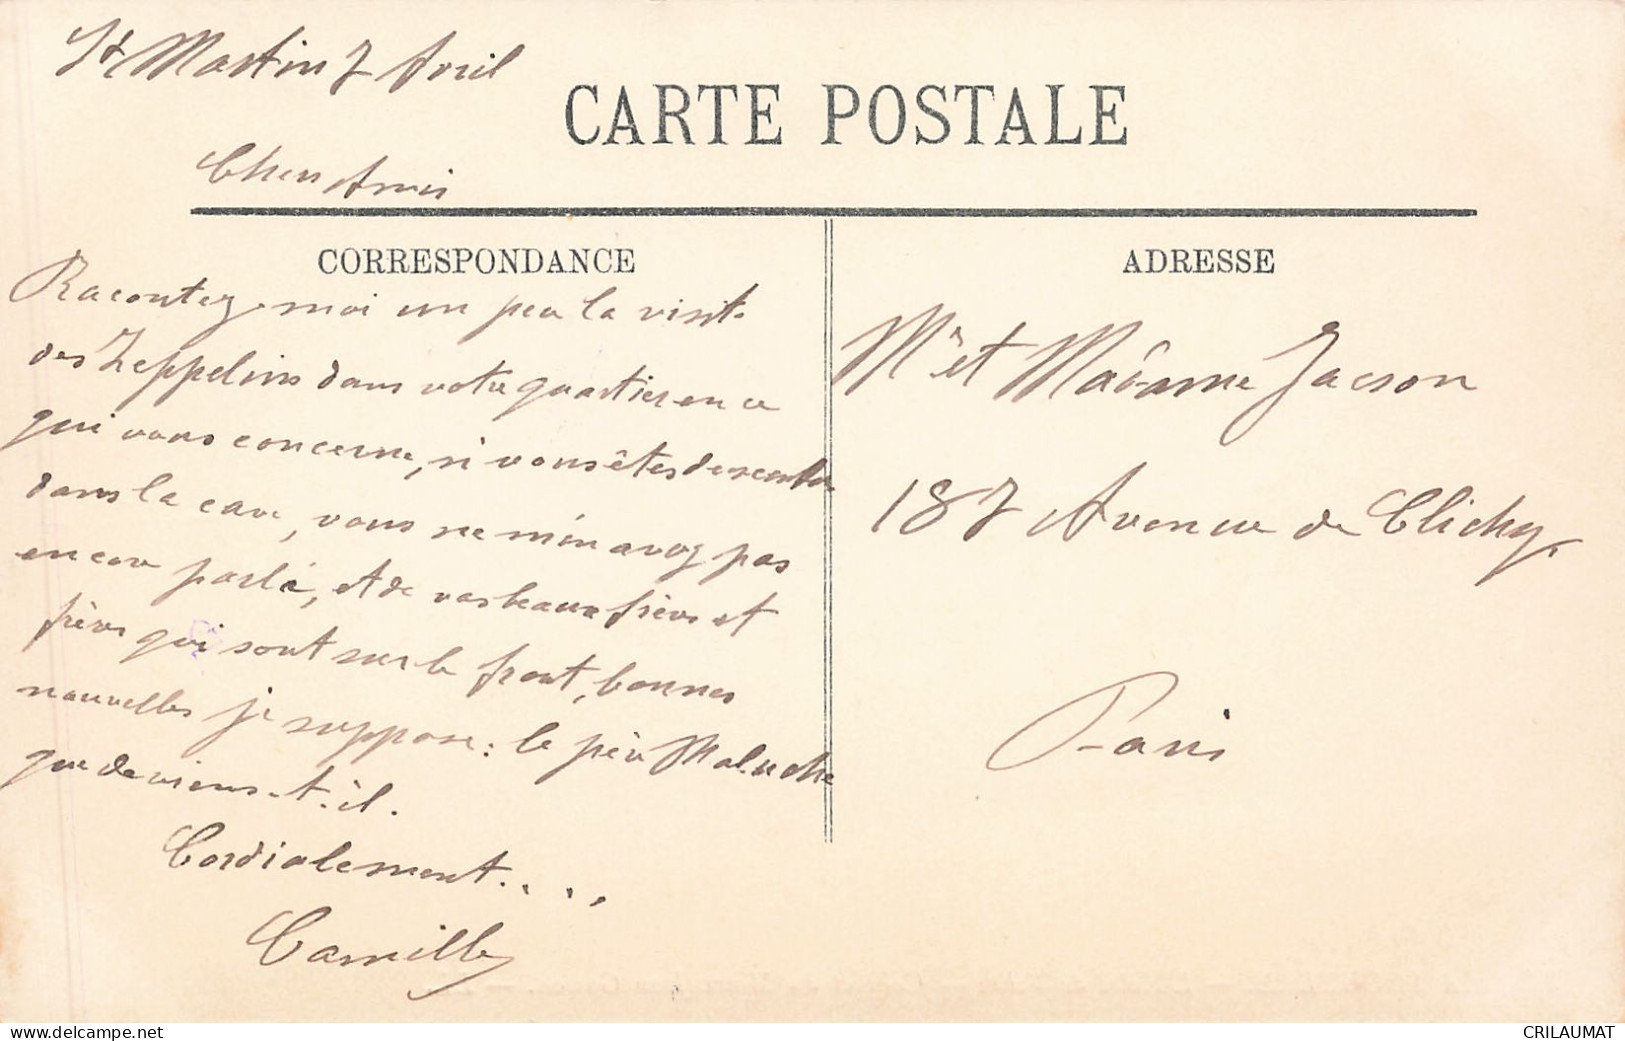 St Martin 7 Avril
CARTE POSTALE
Chers Amis
CORRESPONDANCE
Racontez-moi un peu la visite
des Zeppelins dans votre quartier en ce
qui vous concerne, si vous êtes descendu
dans la cave, vous ne m'en avez pas
encore parlé, et de vos beaux frères et
frères qui sont sur le front, bonnes
nouvelles je suppose : le père Maluche
que deviens-t-il.
Cordialement....
Camille
ADRESSE
Mr et Madame Jacson
187 Avenue de Clichy
Paris
www.delcampe.net
CRILAUMAT